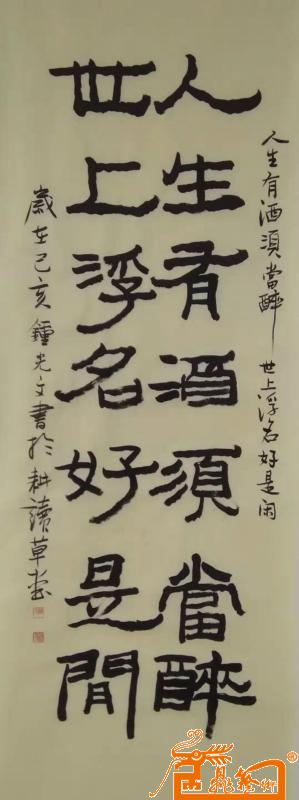 人生有酒須當醉
世上浮名好是閒
人生有酒須當醉 世上浮名好是闲
歲在己亥鍾光文書於耕讀草堂